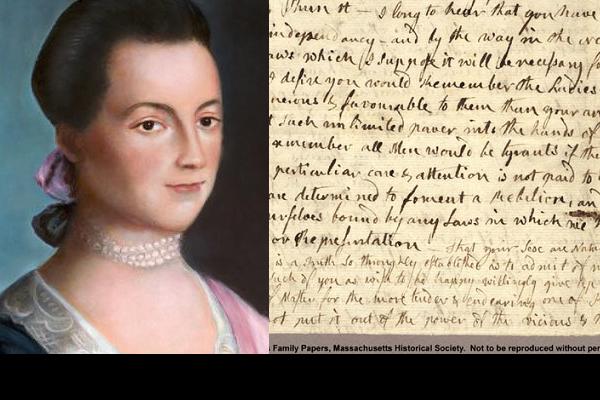 I long to hear that you have
independancy — and by the way in the
which I suppose it will be necessary
I desire you would Remember the Ladies
& favourable to them than your
such unlimited power into the hands of
remember all Men would be tyrants if the
perticuliar care & attention is not paid to
are determined to foment a Rebelion, an
bound by any Laws in which we
or Representation — that your Sex are Natu
is a Truth so thoroughly established as to admit of
such of you as wish to be happy willingly give
of Master for the more tender & endearing one of
not put it out of the power of the vicious &
Family Papers, Massachusetts Historical Society. Not to be reproduced without per